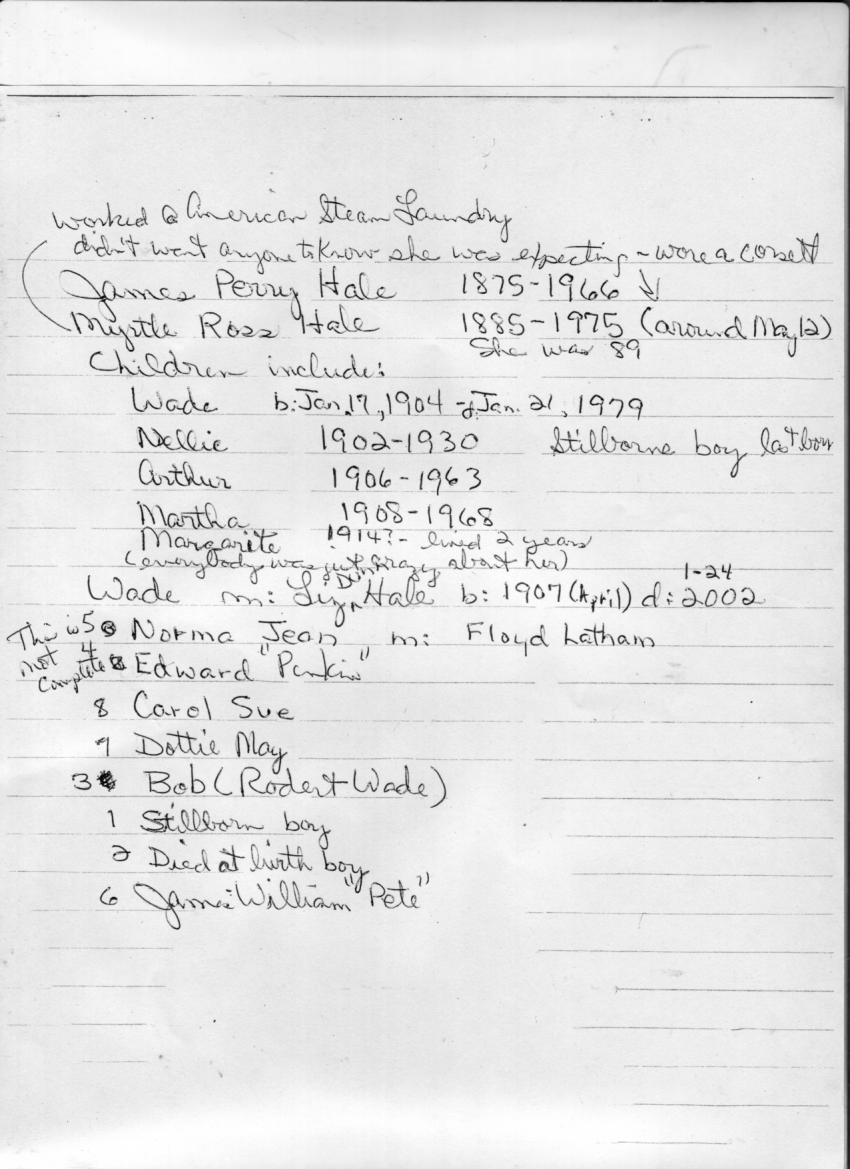 Worked @ American Steam Laundry
didn't want anyone to know she was expecting - wore a corsett
James Perry Hale 1875-1966
Myrtle Ross Hale 1885-1975 (around May 12)
She was 89
Children include:
Wade b: Jan. 17, 1904 - d: Jan. 21, 1979
Nellie 1902-1930 Stilborne boy last born
Arthur 1906-1963
Martha 1908-1968
Margarite 1914?- lived 2 years
(everybody was just crazy about her)
Wade m: Liz Hale b: 1907 (April) d: 1-24 2002
This is not complete
5 Norma Jean m: Floyd Latham
4 Edward "Perkin"
8 Carol Sue
7 Dottie May
3 Bob (Rodert Wade)
1 Stillborn boy
2 Died at birth boy
6 James William "Pete"